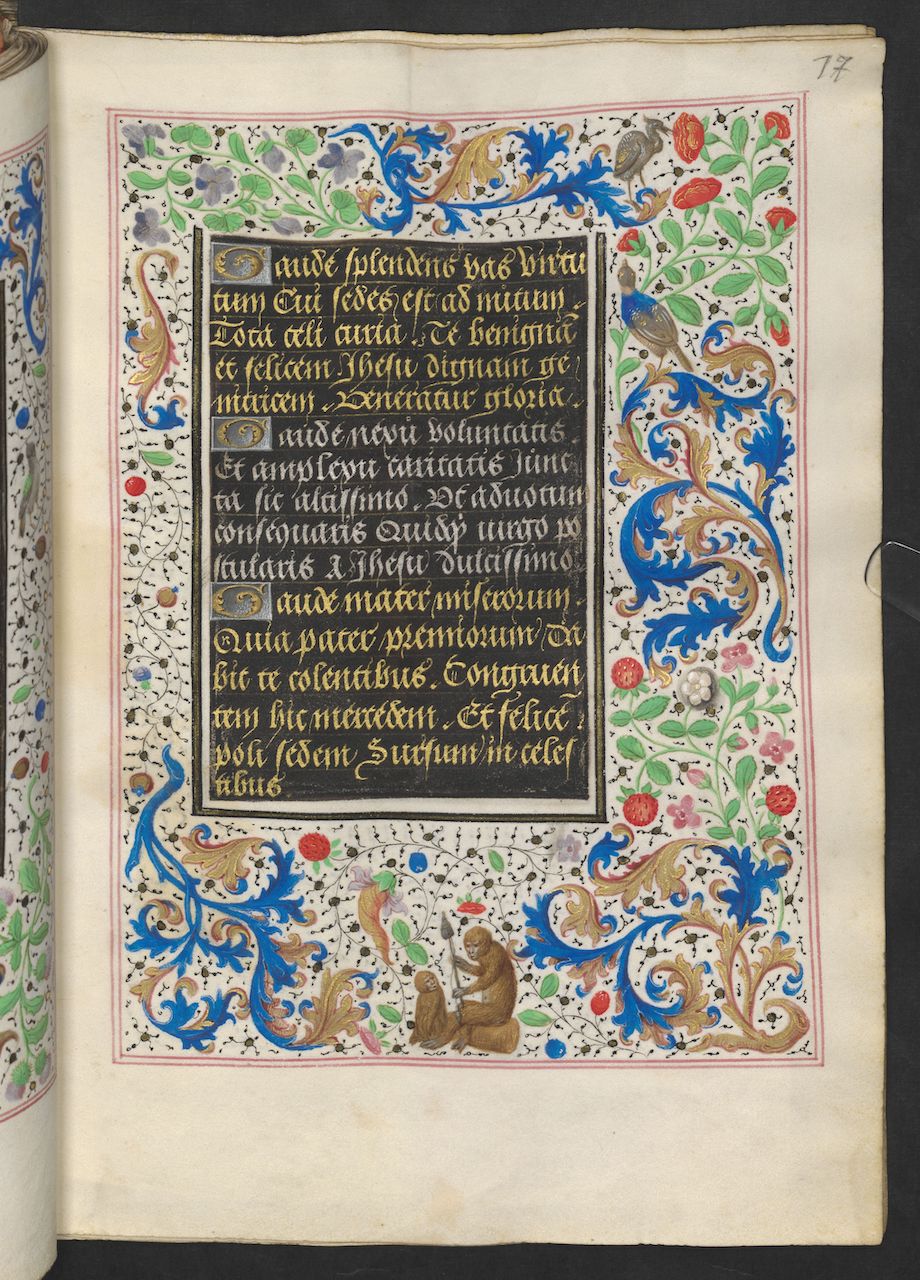 17
Gaude splendens vas virtu
tum Cui sedes est ad nutum.
Tota celi curia. Te benignā
et felicem Jhesu dignam ge
nitricem. Veneratur gloria.
Gaude nexu voluntatis.
Et amplexu caritatis Junc
ta sic altissimo. Vt ad votum
consequaris Quidq̄ virgo po
stularis A Jhesu dulcissimo.
Gaude mater miserorum.
Quia pater premiorum Da
bit te colentibus. Congruen
tem hic mercedem. Et felicē
poli sedem Sursum in celes
tibus